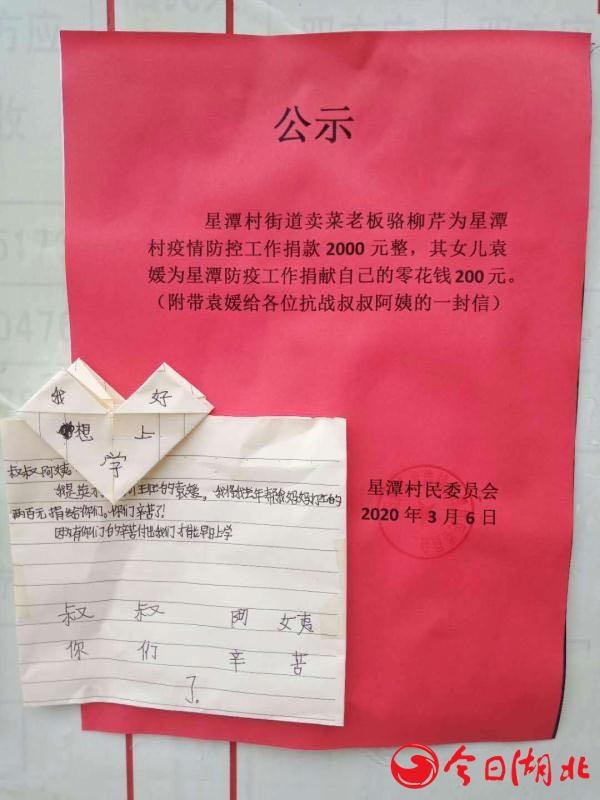 公示
星潭村街道卖菜老板骆柳芹为星潭
村疫情防控工作捐款 2000 元整，其女儿袁
媛为星潭防疫工作捐献自己的零花钱 200 元。
（附带袁媛给各位抗战叔叔阿姨的一封信）
星潭村民委员会
2020 年 3 月 6 日
我 好
想 上
学
叔叔阿姨
我是
的袁媛，我将我去年帮你妈妈打工的
两百元捐给你们。你们辛苦了!
因为有你们的辛苦付出我们才能早日上学
叔 叔 阿 姨
你 们 辛 苦
了
今日湖北